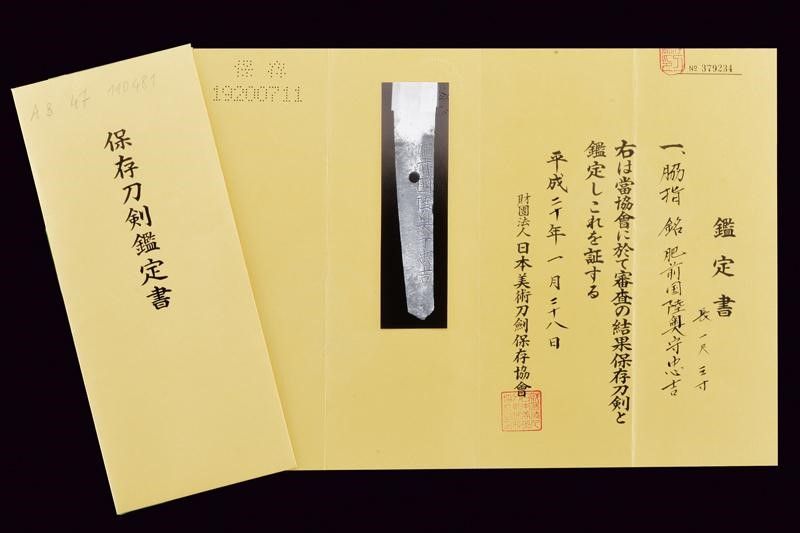 AB 47 110481
保存刀剣鑑定書
保存
19200711
№ 379234
鑑定書
一、脇指 銘 肥前国陸奥守忠吉
長一尺三寸
右は當協會に於て審査の結果保存刀剣と
鑑定しこれを証する
平成二十年一月二十八日
財團法人 日本美術刀剣保存協會